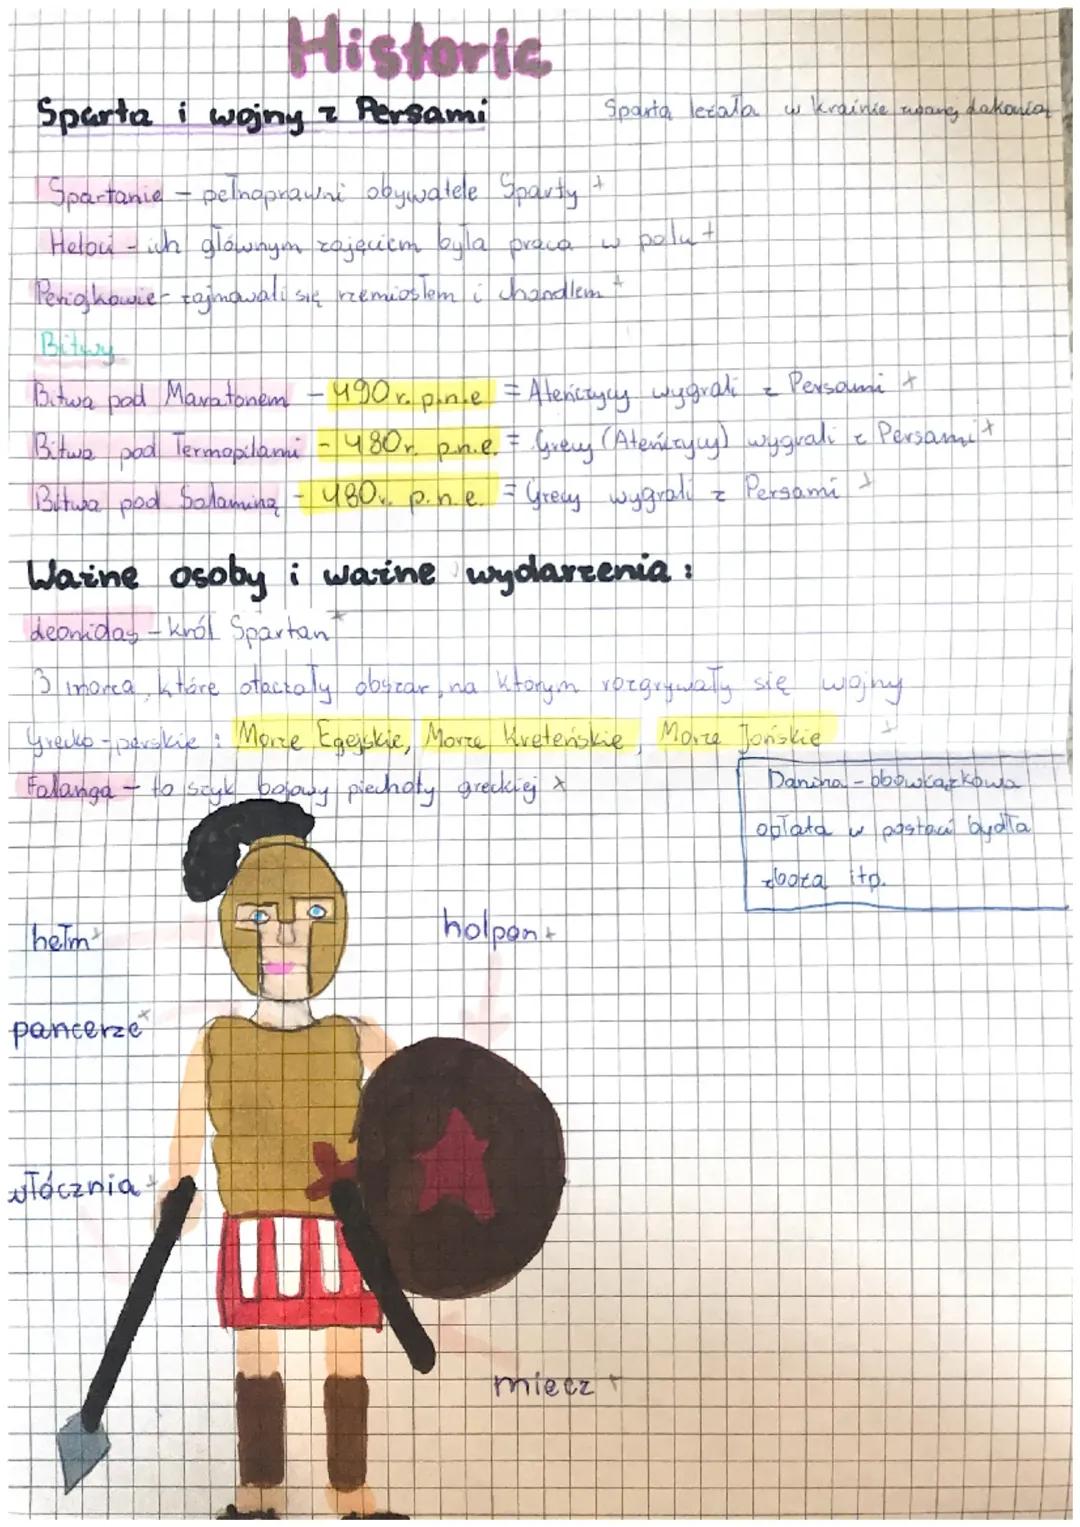 Historia
Sparta i wojny z Persami
Sparta leżała w krainie zwanej Lakonią
Spartanie - pełnoprawni obywatele Sparty +
Heloci - ich głównym zajęciem była praca w polu +
Periojkowie - zajmowali się rzemiosłem i chandlem +
Bitwy
Bitwa pod Maratonem - 490 r. p.n.e = Ateńczycy wygrali z Persami +
Bitwa pod Termopilami - 480 r. p.n.e. = Grecy (Ateńczycy) wygrali z Persami +
Bitwa pod Salaminą - 480 r. p.n.e. = Grecy wygrali z Persami +
Ważne osoby i ważne wydarzenia :
Leonidas - król Spartan +
3 morza, które otaczały obszar, na którym rozgrywały się wojny
Grecko - perskie : Morze Egejskie, Morze Kreteńskie, Morze Jońskie +
Falanga - to szyk bojowy piechoty greckiej x
Danina - obowiązkowa
opłata w postaci bydła
zboża itp.
hełm +
holpon +
pancerze x
włócznia +
miecz +